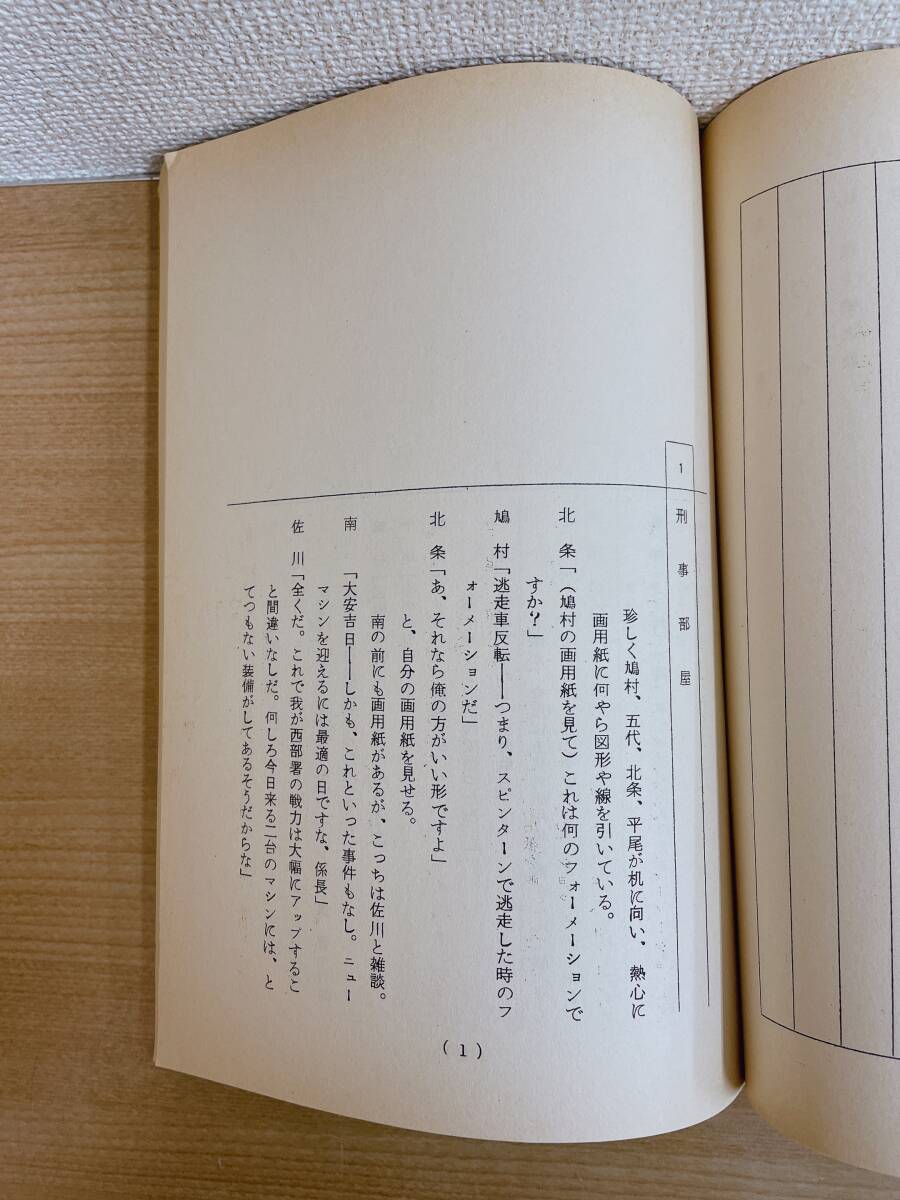 1 刑事部屋
珍しく鳩村、五代、北条、平尾が机に向い、熱心に
画用紙に何やら図形や線を引いている。
北条「(鳩村の画用紙を見て)これは何のフォーメーションで
すか?」
鳩村「逃走車反転──つまり、スピンターンで逃走した時のフ
ォーメーションだ」
北条「あ、それなら俺の方がいい形ですよ」
と、自分の画用紙を見せる。
南の前にも画用紙があるが、こっちは佐川と雑談。
南「大安吉日──しかも、これといった事件もなし。ニュー
マシンを迎えるには最適の日ですな、係長」
佐川「全くだ。これで我が西部署の戦力は大幅にアップするこ
と間違いなしだ。何しろ今日来る二台のマシンには、と
てつもない装備がしてあるそうだからな」
(1)